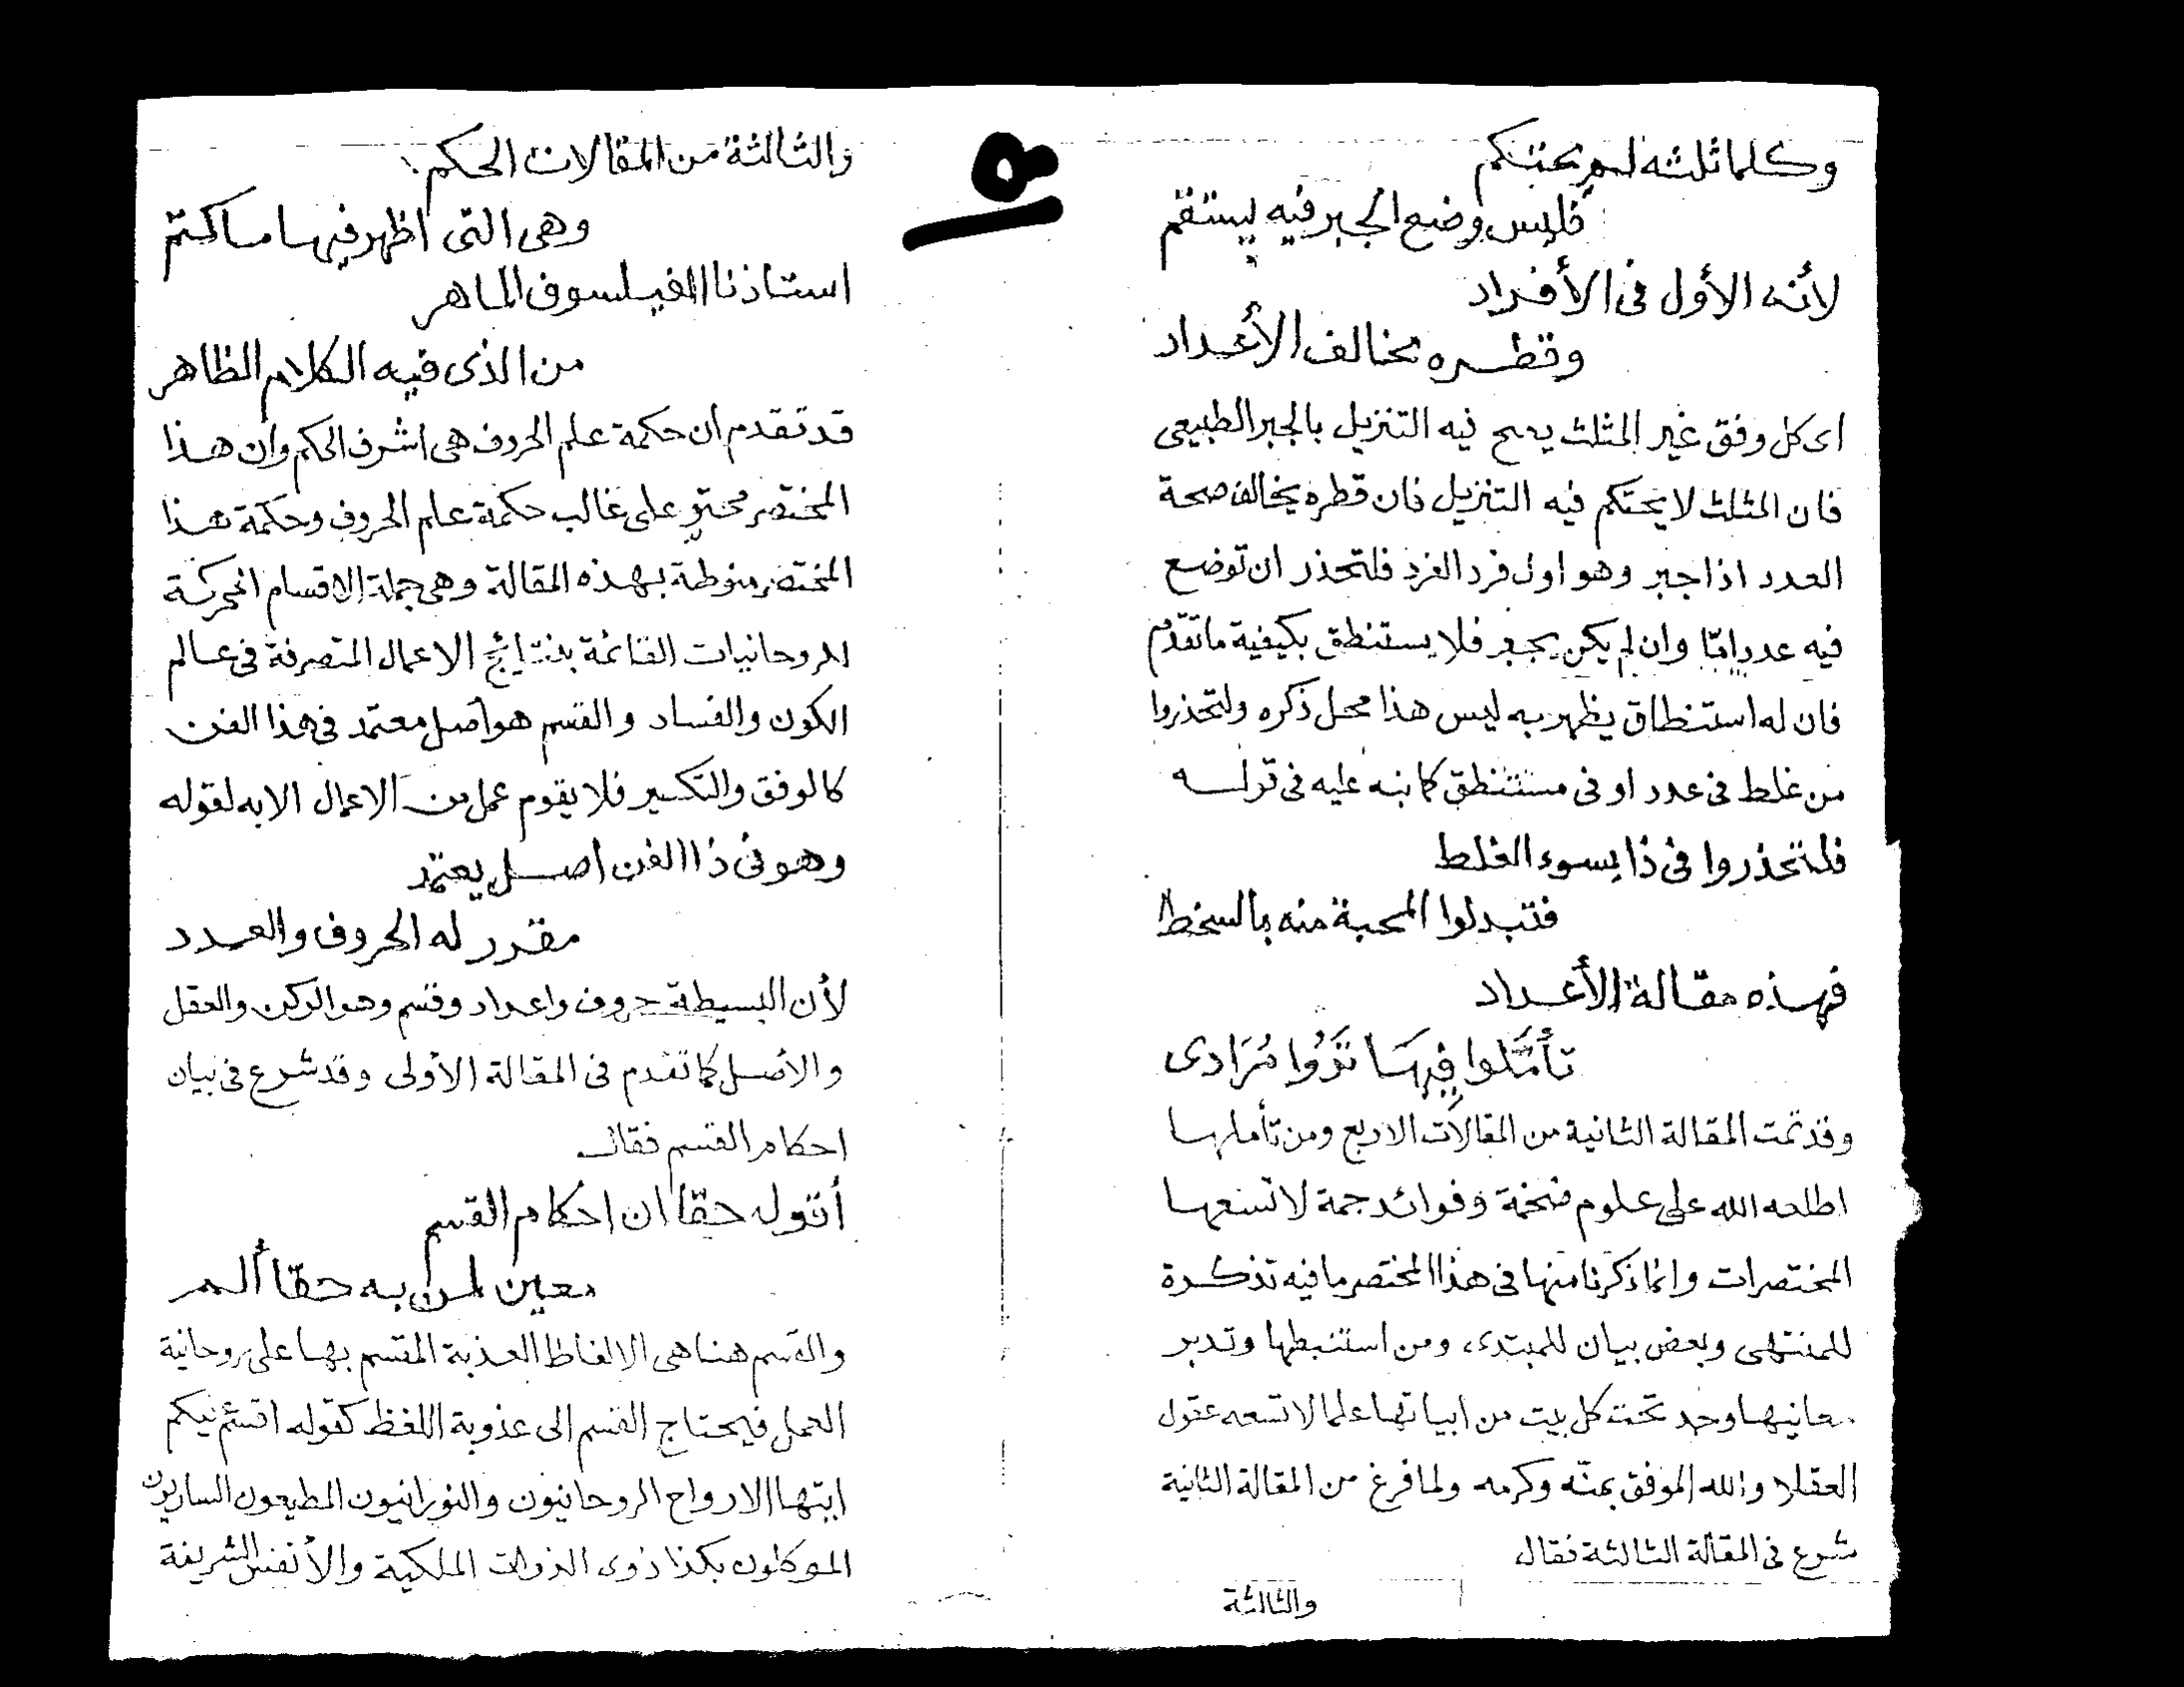 وكلما ثلثته لم يحتكم
فليس وضع الجبر فيه يستقم
لأنه الأول فى الأفراد
وقطره مخالف الأعداد
اى كل وفق غير المثلث يصح فيه التنزيل بالجبر الطبيعى
فان المثلث لا يحتكم فيه التنزيل فان قطره يخالف صحة
العدد اذا جبر وهو اول فرد الفرد فلتحذر ان توضع
فيه عددا مّا وان لم يكن يجبر فلا يستنطق بكيفية ما تقدم
فان له استنطاق يظهر به ليس هذا محل ذكره ولتحذروا
من غلط فى عدد او فى مستنطق كما نبه عليه فى قوله
فلتحذروا فى ذا بسوء الغلط
فتبدلوا المحبة منه بالسخط
فهذه مقالة الأعداد
تأمَّلوا فِيهَا تَرَوُا مُرَادى
وقد تمت المقالة الثانية من المقالات الاربع ومن تأملها
اطلعه الله على علوم ضخمة وفوائد جمة لا تسعها
المختصرات وانما ذكرنا منها فى هذا المختصر ما فيه تذكرة
للمنتهى وبعض بيان للمبتدى ومن استنبطها وتدبر
معانيها وجد تحت كل بيت من ابياتها علما لا تسعه عقول
العقلا والله الموفق بمنّه وكرمه ولما فرغ من المقالة الثانية
شرع فى المقالة الثالثة فقال
والثالثة
٥
والثالثة من المقالات الحكم
وهى التى اظهر فيها ما كتم
استاذنا الفيلسوف الماهر
من الذى فيه الكلام الظاهر
قد تقدم ان حكمة علم الحروف هى اشرف الحكم وان هذا
المختصر محتوٍ على غالب حكمة علم الحروف وحكمة هذا
المختصر منوطة بهذه المقالة وهى جملة الاقسام المحركة
للروحانيات القائمة بنتايج الاعمال المتصرفة فى عالم
الكون والفساد والقسم هو اصل معتمد فى هذا الفن
كالوفق والتكسير فلا يقوم عمل من الاعمال الا به لقوله
وهو فى ذا الفن اصل يعتمد
مقرر له الحروف والعدد
لأن البسيطة حروف واعداد وقسم وهو الركن والعقل
والاصل كما تقدم فى المقالة الأولى وقد شرع فى بيان
احكام القسم فقال
أقول حقا ان احكام القسم
معين لمن به حقا ألم
والقسم هنا هى الالفاظ العذبة المقسم بها على روحانية
العمل فيحتاج القسم الى عذوبة اللفظ كقوله اقسم عليكم
ايتها الارواح الروحانيون والنورانيون المطيعون الساريون
الموكلون بكذا ذوى الذوات الملكية والأنفس الشريفة